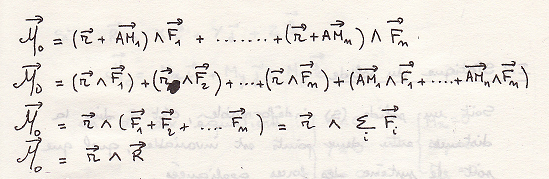 M⃗₀ = (r⃗ + AM⃗₁) ∧ F⃗₁ + ........ + (r⃗ + AM⃗ₙ) ∧ F⃗ₙ
M⃗₀ = (r⃗ ∧ F⃗₁) + (r⃗ ∧ F⃗₂) + ... + (r⃗ ∧ F⃗ₙ) + (AM⃗₁ ∧ F⃗₁ + .... + AM⃗ₙ ∧ F⃗ₙ)
M⃗₀ = r⃗ ∧ (F⃗₁ + F⃗₂ + .... F⃗ₙ) = r⃗ ∧ Σᵢ F⃗ᵢ
M⃗₀ = r⃗ ∧ R⃗